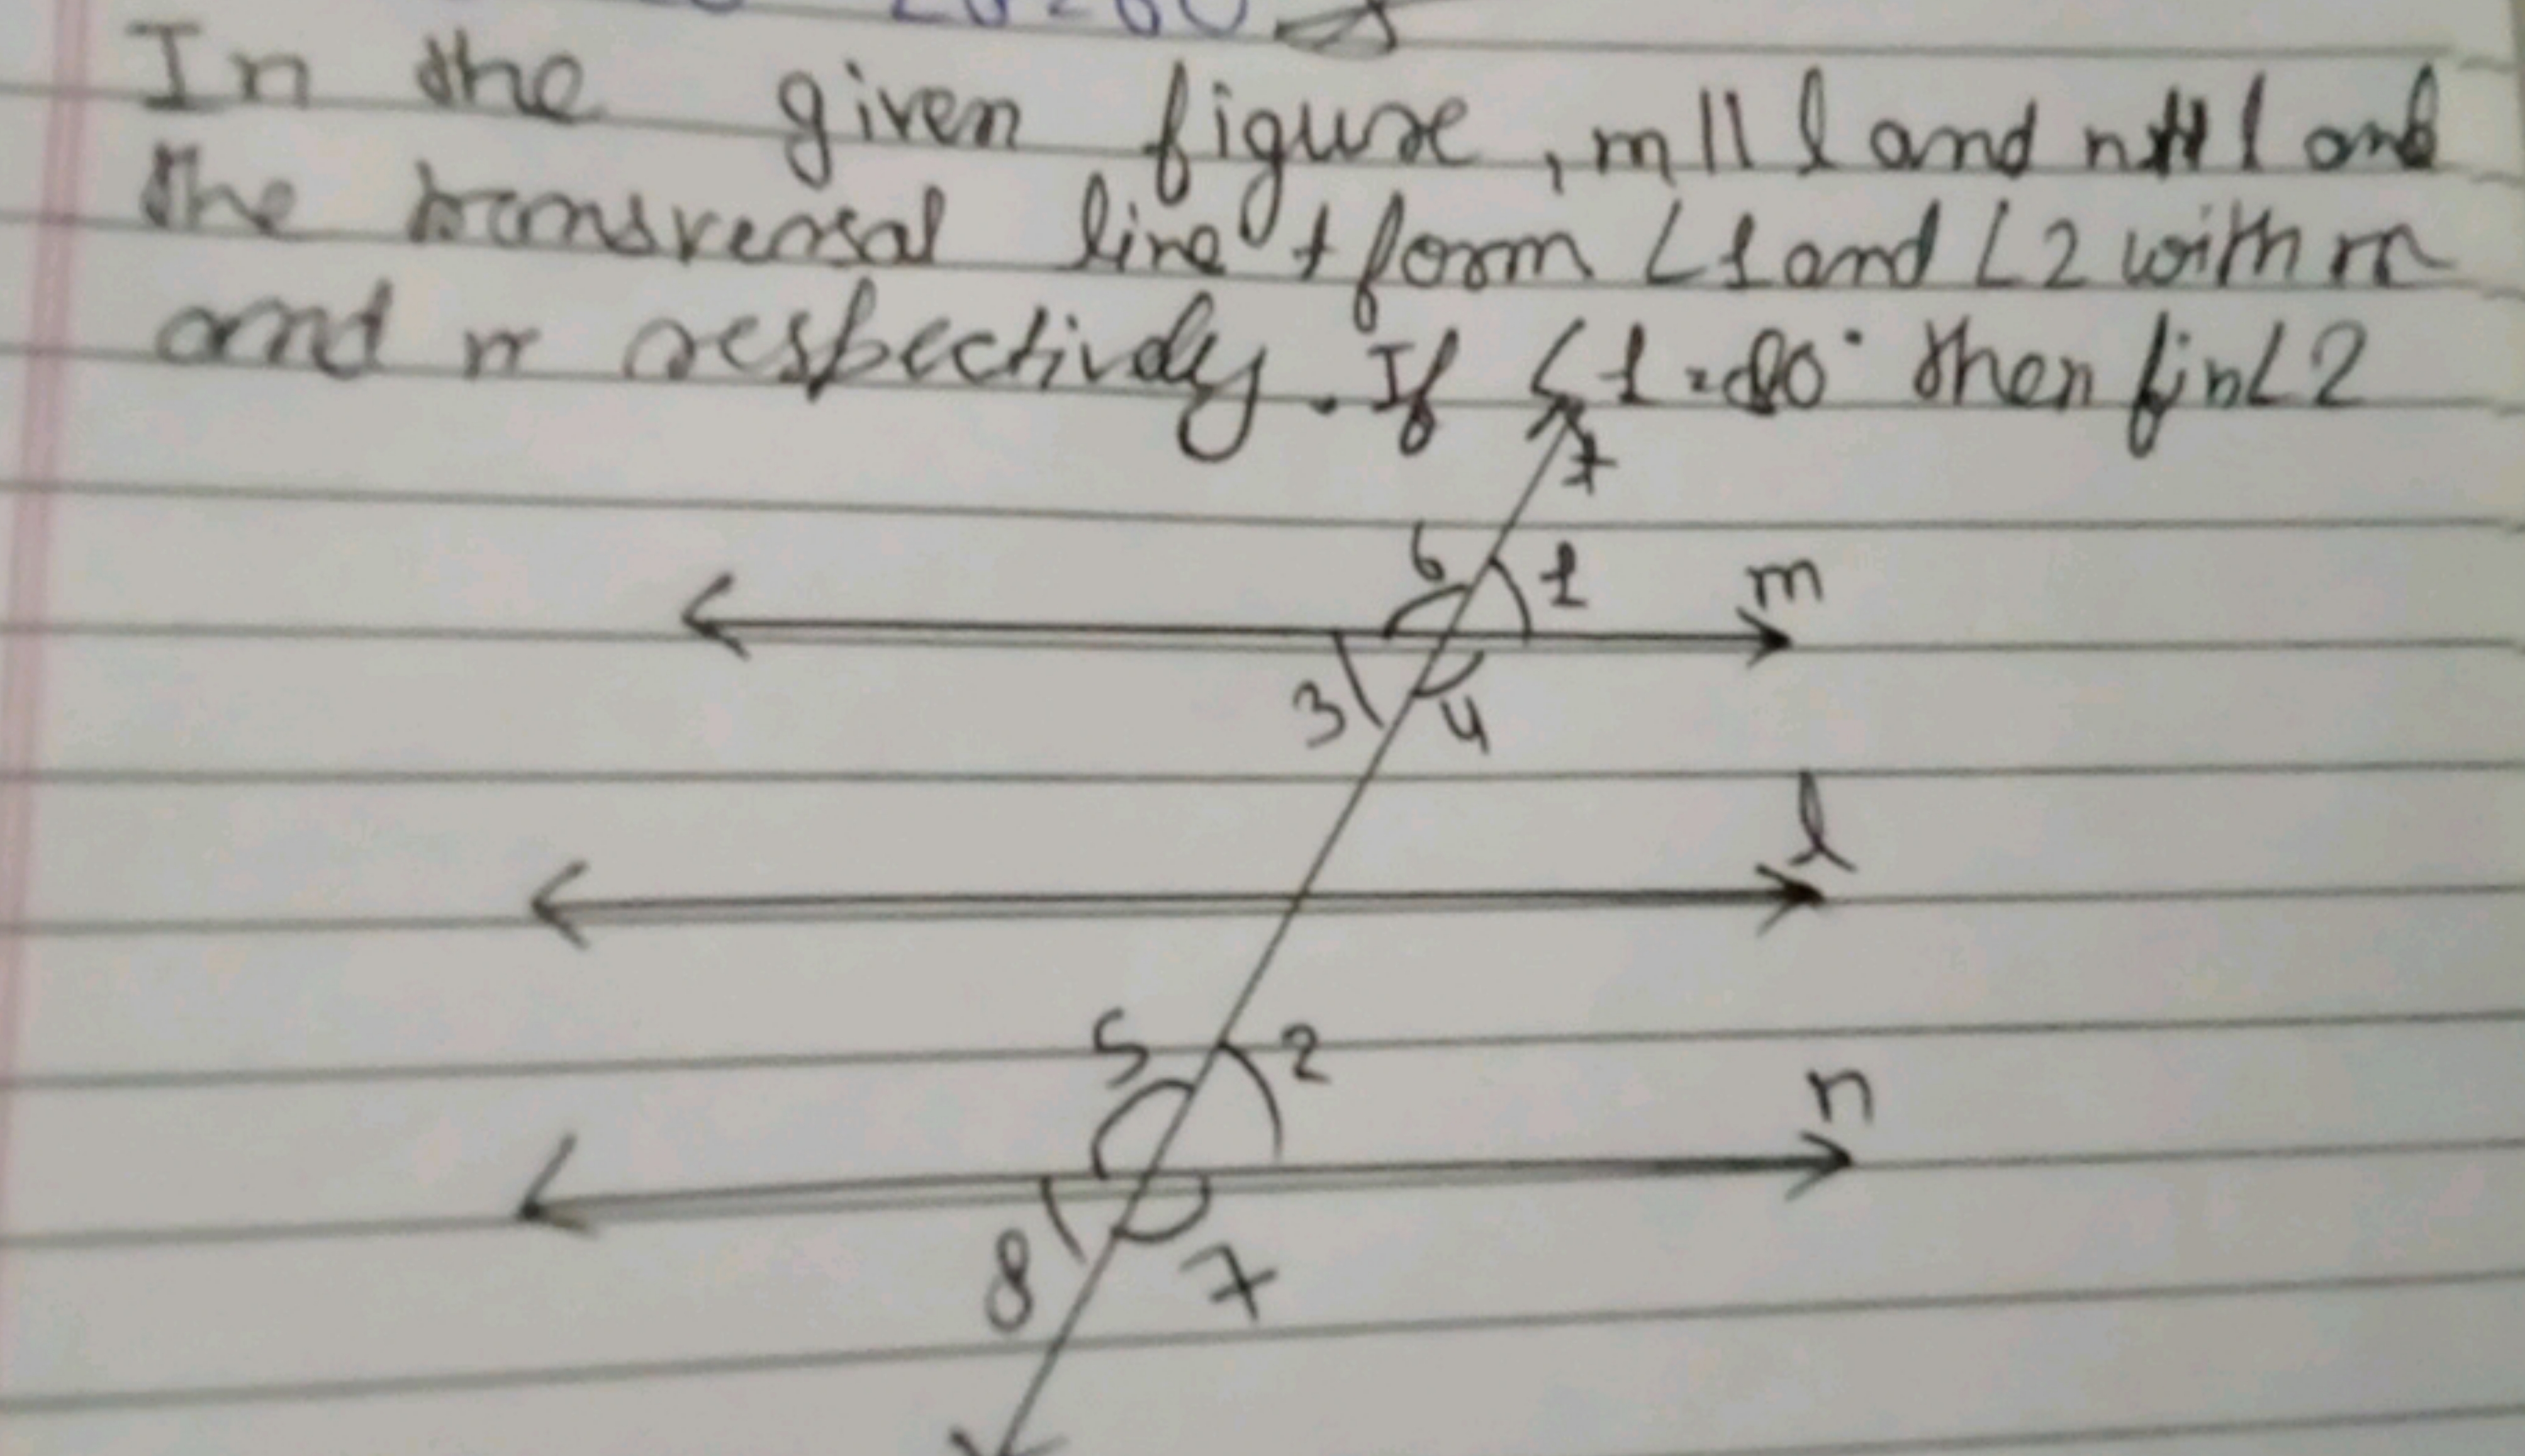 In the given figure, m || l and n || l and
the transversal line t form ∠1 and ∠2 with m
and n respectively. If ∠1 = 80° then fin ∠2
t
6 1 m
3 4
l
5 2
n
8 7